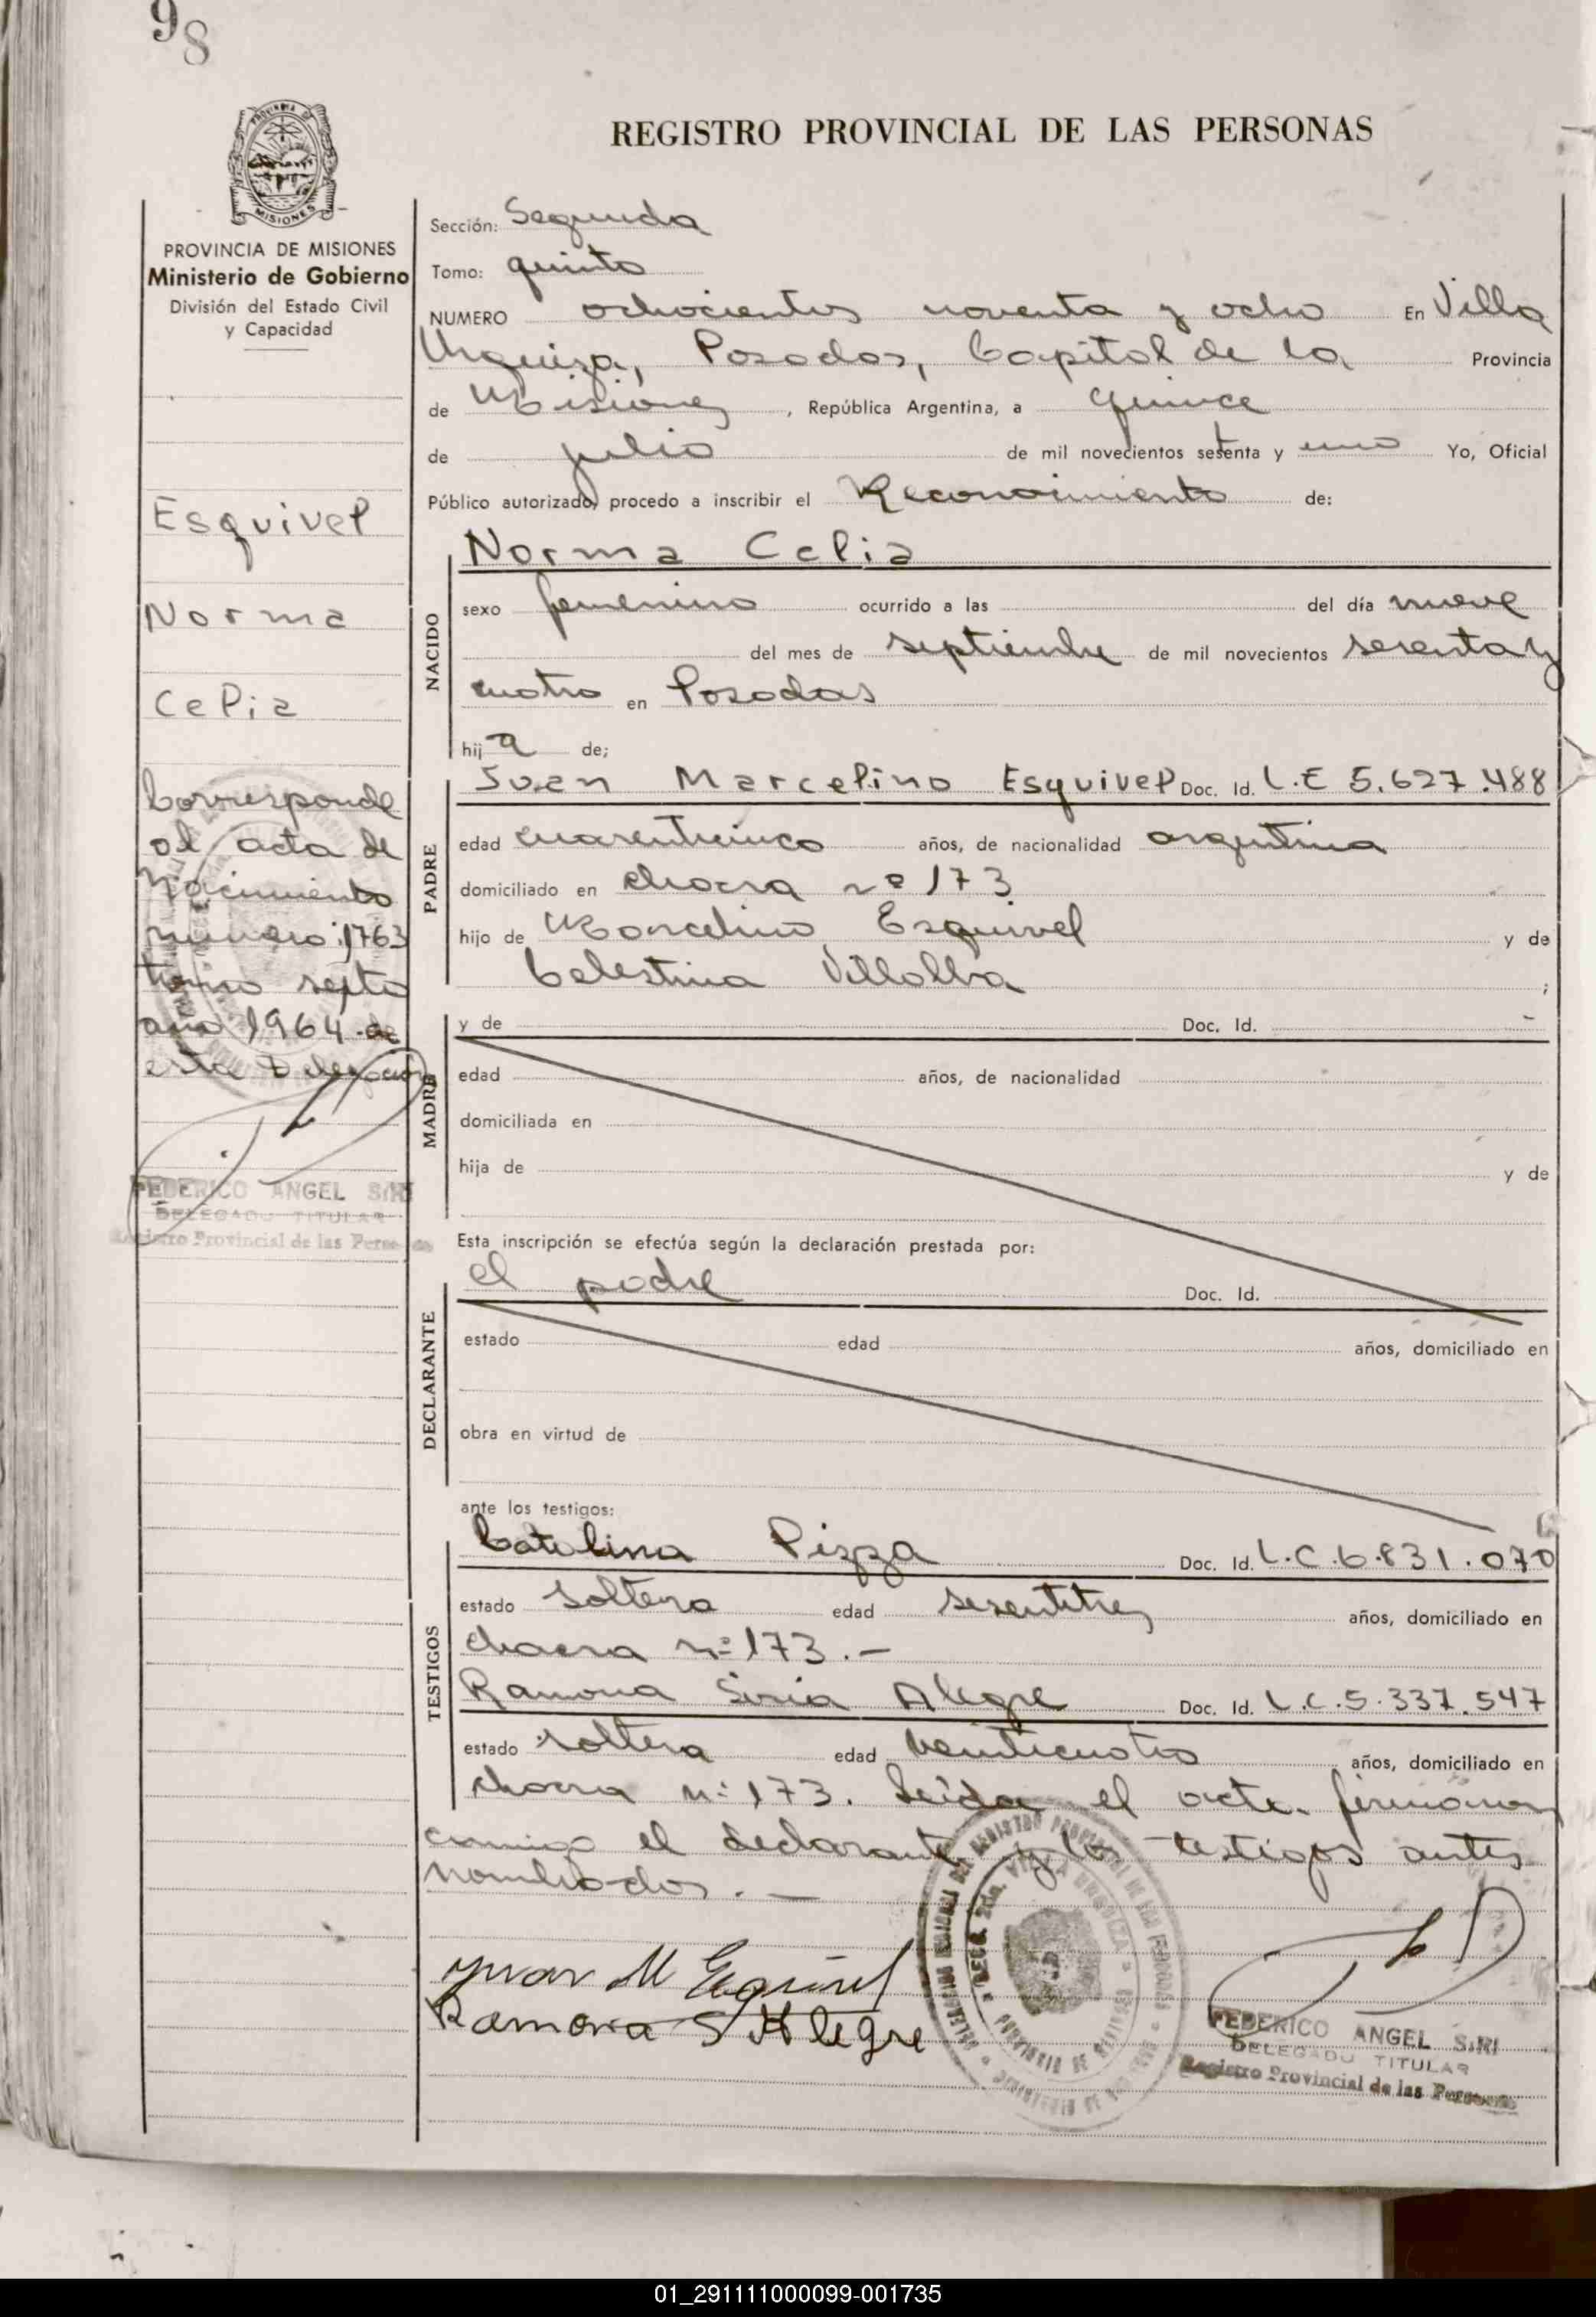 98
REGISTRO PROVINCIAL DE LAS PERSONAS
MISIONES
PROVINCIA DE MISIONES
Ministerio de Gobierno
División del Estado Civil
y Capacidad
Esquivel
Norma
Celia
Corresponde
al acta de
Nacimiento
numero: 1763
tomo septo
año 1964 de
esta Delegacion
FEDERICO ANGEL SIRI
DELEGADO TITULAR
Registro Provincial de las Personas
Sección: Segunda
Tomo: quinto
NUMERO ochocientos noventa y ocho En Villa
Urquiza, Posadas, Capital de la Provincia
de Misiones, República Argentina, a quince
de julio de mil novecientos setenta y uno Yo, Oficial
Público autorizado, procedo a inscribir el Reconocimiento de:
NACIDO
Norma Celia
sexo femenino ocurrido a las del día nueve
del mes de septiembre de mil novecientos sesenta y
cuatro en Posadas
hija de;
PADRE
Juan Marcelino Esquivel Doc. Id. L.E 5.627.488
edad cuarenticinco años, de nacionalidad argentina
domiciliado en chacra nº 173
hijo de Marcelino Esquivel y de
Celestina Villalba ;
MADRE
y de Doc. Id.
edad años, de nacionalidad
domiciliada en
hija de y de
Esta inscripción se efectúa según la declaración prestada por:
DECLARANTE
el padre Doc. Id.
estado edad años, domiciliado en
obra en virtud de
ante los testigos:
TESTIGOS
Catalina Pizza Doc. Id. L.C.6.831.070
estado soltera edad sesentitres años, domiciliado en
chacra nº 173.-
Ramona Siria Alegre Doc. Id. L.C.5.337.547
estado soltera edad veinticuatro años, domiciliado en
chacra nº 173. Leida el acta firman
conmigo el declarante y los testigos antes
nombrados.—
Juan M Esquivel
Ramona S Alegre
FEDERICO ANGEL SIRI
DELEGADO TITULAR
Registro Provincial de las Personas
01_291111000099-001735